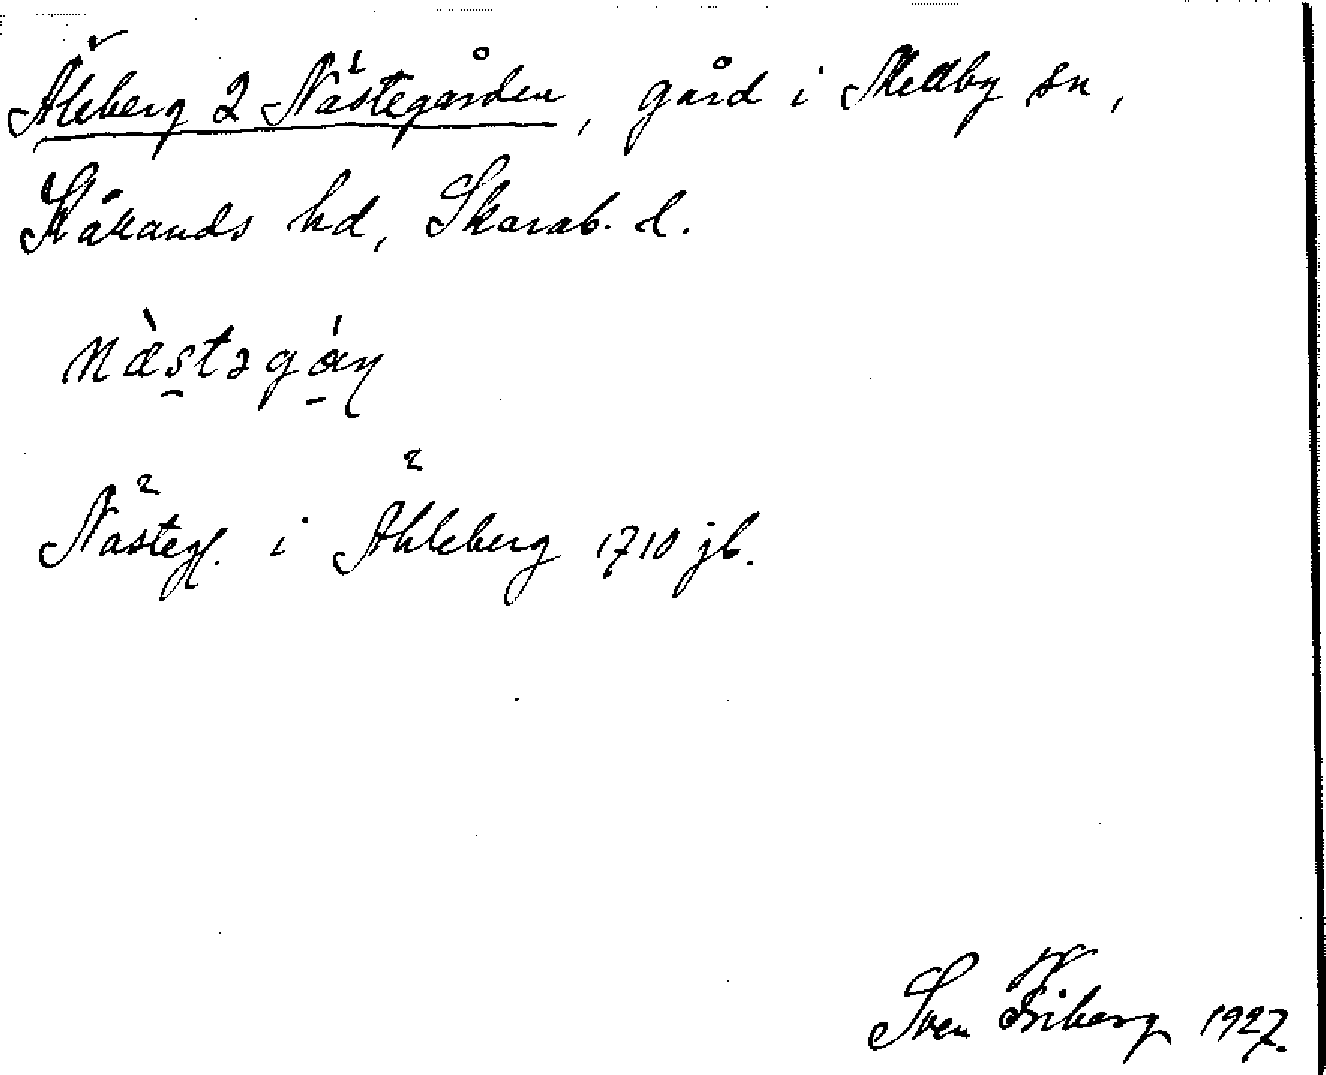 Äleberg 2 Nästegården, gård i Mellby sn,
Kållands hd, Skarab. l.
næ̀stəgɑ́ɳ
Nästeg. i Ähleberg 1710 jb.
Sven Friberg 1927.